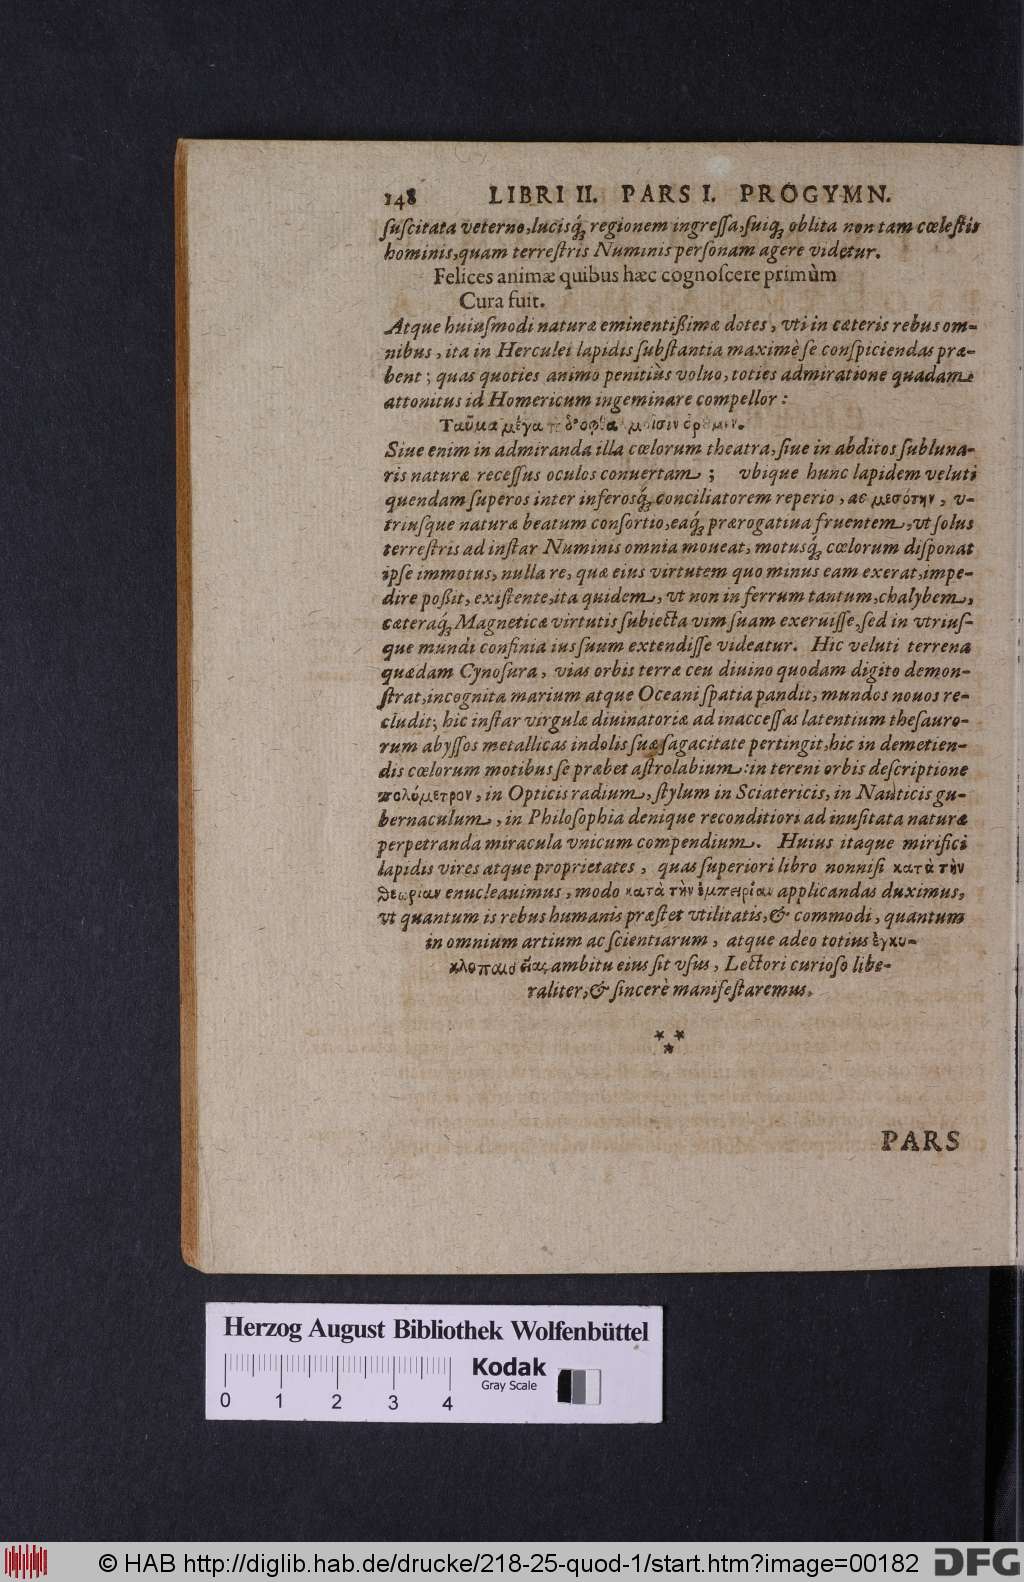 148 LIBRI II. PARS I. PROGYMN.
ſuſcitata veterno, lucisq́ꝫ regionem ingreſſa, ſuiqꝫ oblita non tam cœleſtis
hominis, quam terreſtris Numinis perſonam agere videtur.
Felices animæ quibus hæc cognoſcere primùm
Cura fuit.
Atque huiuſmodi naturæ eminentißimæ dotes, vti in cæteris rebus om-
nibus, ita in Herculei lapidis ſubſtantia maximè ſe conſpiciendas præ-
bent; quas quoties animo penitiùs voluo, toties admiratione quadam
attonitus id Homericum ingeminare compellor:
Ταῦμα μέγα
Siue enim in admiranda illa cœlorum theatra, ſiue in abditos ſubluna-
ris naturæ receſſus oculos conuertam; vbique hunc lapidem veluti
quendam ſuperos inter inferosq́ꝫ conciliatorem reperio, ac μεσότην, v-
triuſque naturæ beatum conſortio, eaq́ꝫ prærogatiua fruentem, vt ſolus
terreſtris ad inſtar Numinis omnia moueat, motusq́ꝫ cœlorum diſponat
ipſe immotus, nulla re, quæ eius virtutem quo minus eam exerat, impe-
dire poßit, exiſtente, ita quidem, vt non in ferrum tantum, chalybem,
cæteraq́ꝫ Magneticæ virtutis ſubiecta vim ſuam exeruiſſe, ſed in vtriuſ-
que mundi confinia ius ſuum extendiſſe videatur. Hic veluti terrena
quædam Cynoſura, vias orbis terræ ceu diuino quodam digito demon-
ſtrat, incognita marium atque Oceani ſpatia pandit, mundos nouos re-
cludit; hic inſtar virgulæ diuinatoriæ ad inacceſſas latentium theſauro-
rum abyſſos metallicas indolis ſuæ ſagacitate pertingit, hic in demetien-
dis cœlorum motibus ſe præbet aſtrolabium: in tereni orbis deſcriptione
πολόμετρον, in Opticis radium, ſtylum in Sciatericis, in Nauticis gu-
bernaculum, in Philoſophia denique reconditiori ad inuſitata naturæ
perpetranda miracula vnicum compendium. Huius itaque mirifici
lapidis vires atque proprietates, quas ſuperiori libro nonniſi κατὰ τὴν
θεωρίαν enucleauimus, modo κατὰ τὴν ἐμπειρίαν applicandas duximus,
vt quantum is rebus humanis præſtet vtilitatis, & commodi, quantum
in omnium artium ac ſcientiarum, atque adeo totius ἐγκυ-
κλοπαιδείας ambitu eius ſit vſus, Lectori curioſo libe-
raliter, & ſincerè manifeſtaremus.
* * *
PARS
Herzog August Bibliothek Wolfenbüttel
0 1 2 3 4
Kodak
Gray Scale
© HAB http://diglib.hab.de/drucke/218-25-quod-1/start.htm?image=00182 DFG